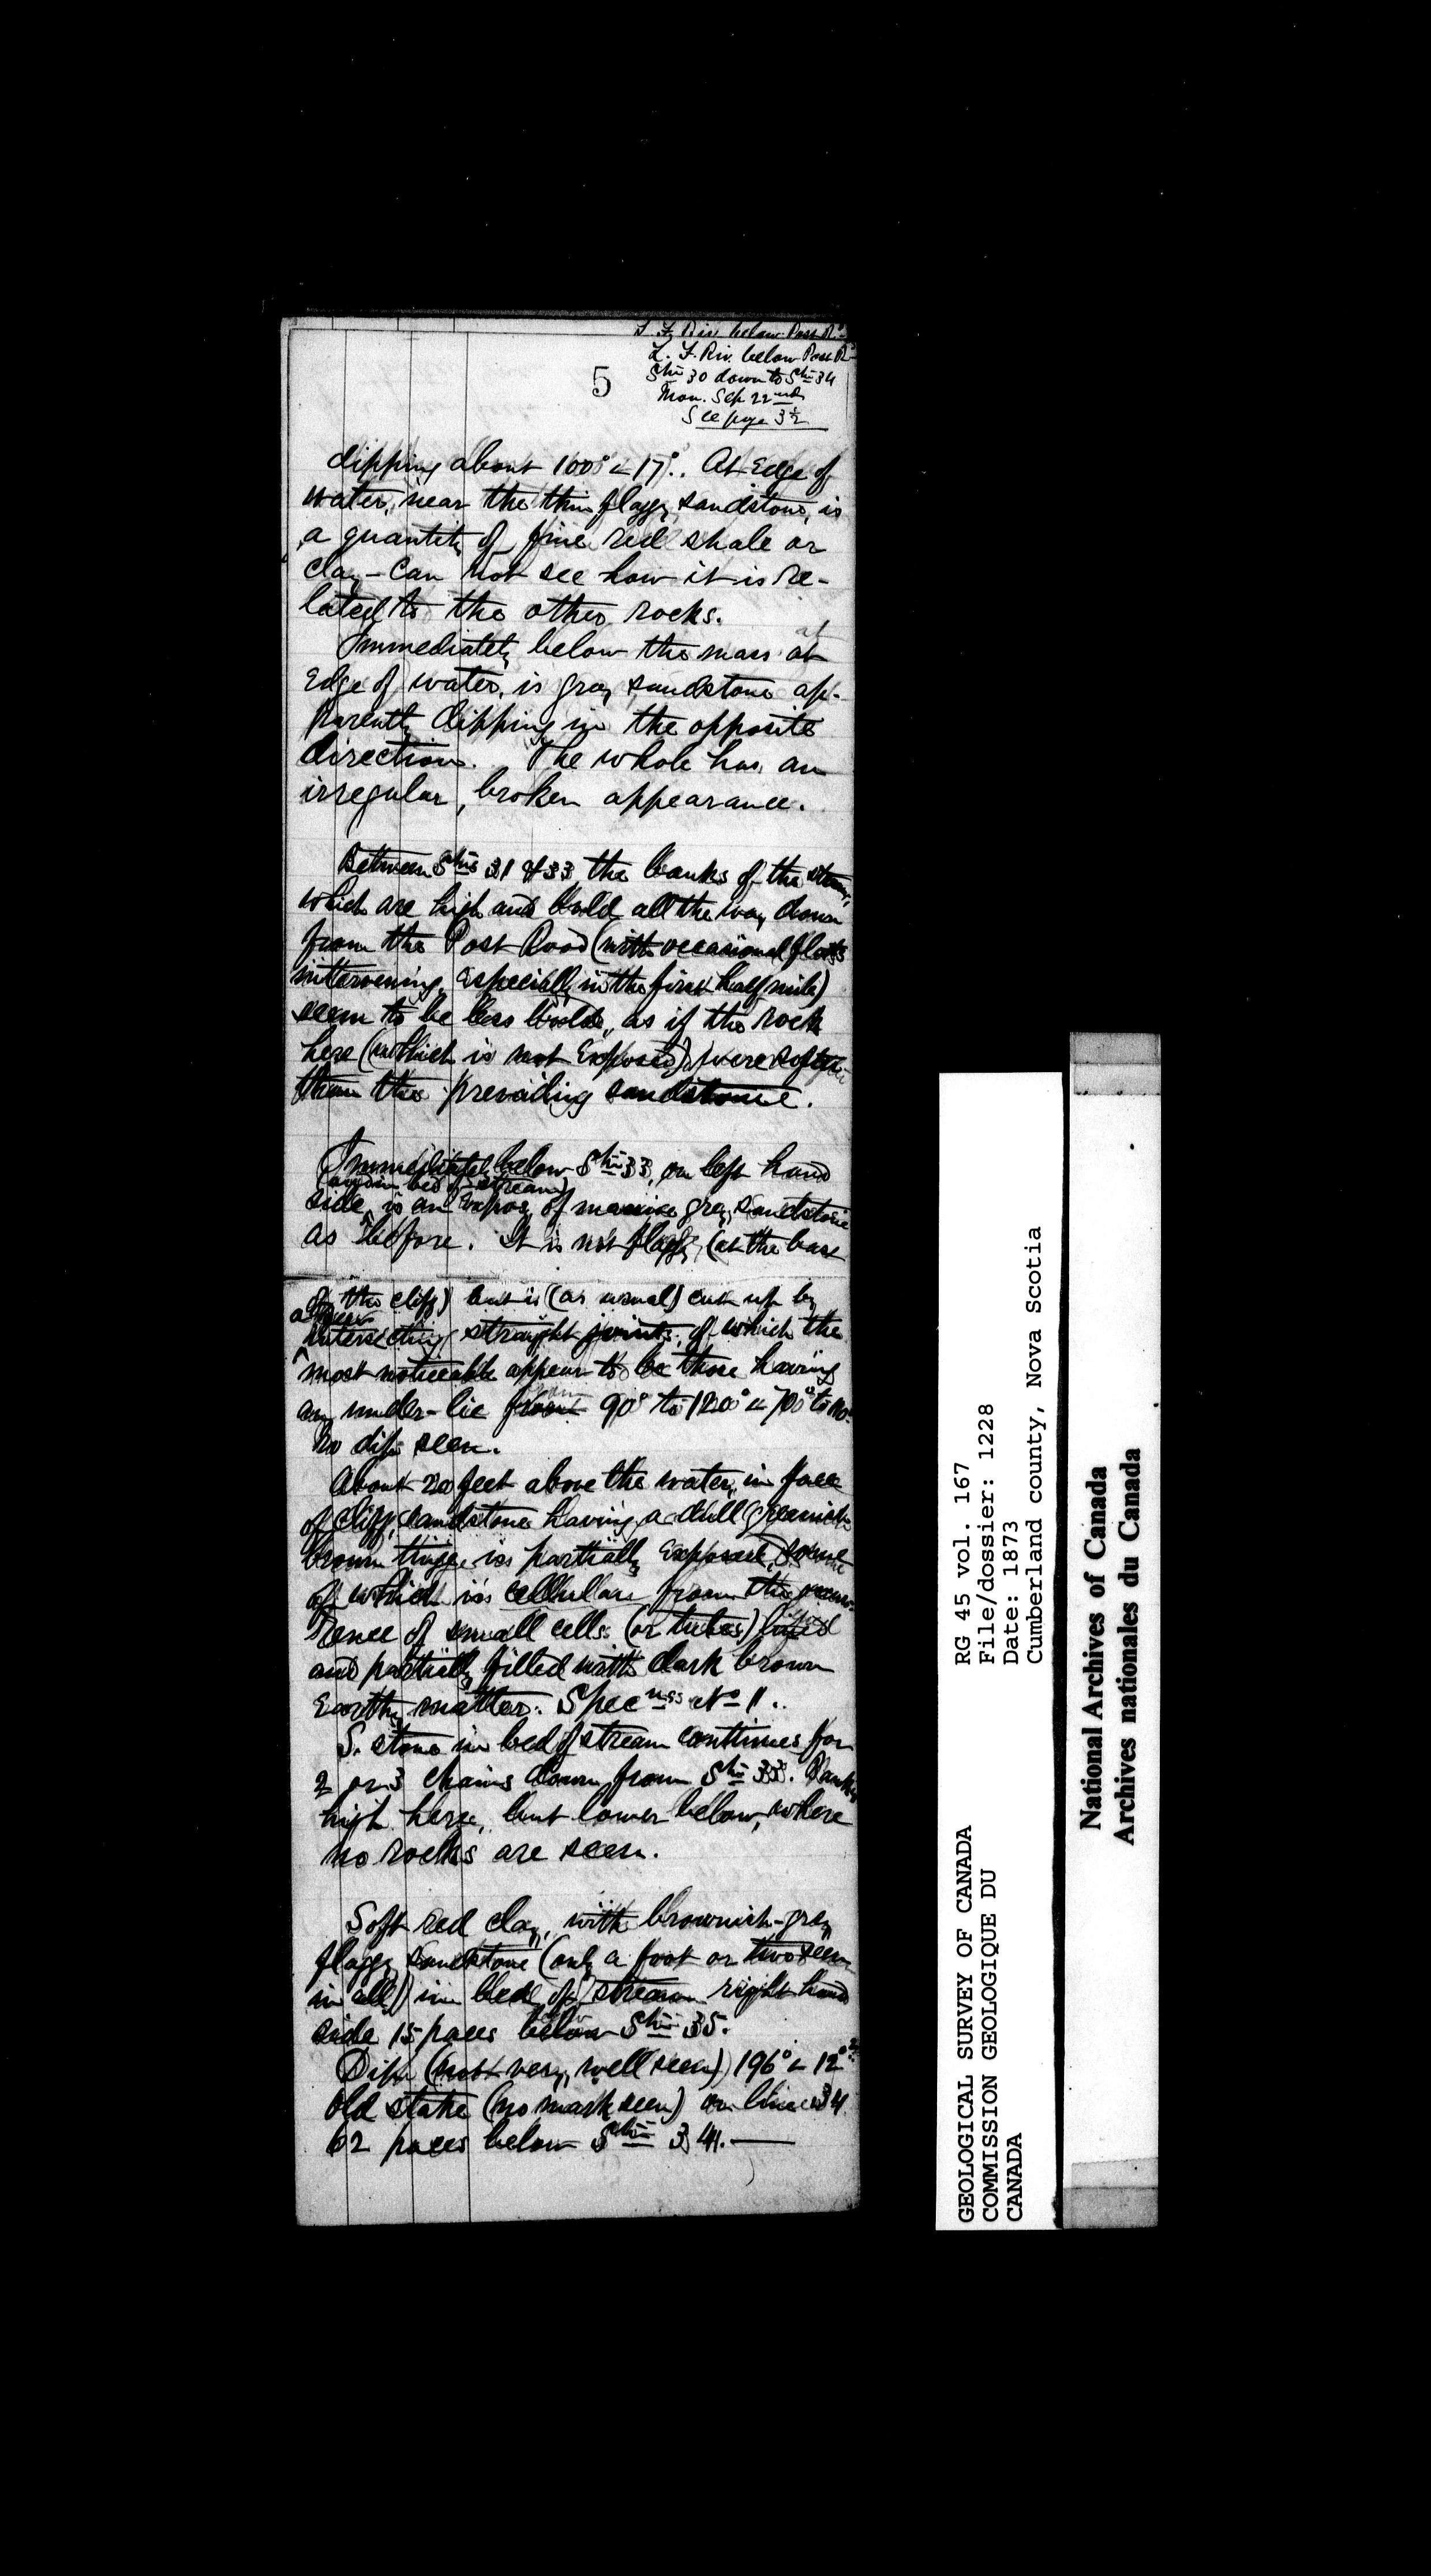 L. F. Riv. below Post R.
L. F. Riv. below Post R.
5
Stn 30 down to Stn 34
Mon. Sep 22nd
See page 3½
dipping about 100° ∠ 17°. At Edge of
water, near the thin flaggy sandstone, is
a quantity of fine red shale or
clay – Can not see how it is re-
lated to the other rocks.
Immediately below the mass at
Edge of water, is gray sandstone ap-
parently dipping in the opposite
direction. The whole has an
irregular, broken appearance.
Between Stns 31 & 33 the banks of the stream,
which are high and bold all the way down
from the Post Road (with occasional flats
intervening, especially in the first half mile)
seem to be less bold, as if the rock
here (which is not Exposed) were softer
than the prevailing sandstone.
Immediately below Stn 33, on left hand
(and in bed of stream)
side is an Expos. of massive gray sandstone
as before. It is not flaggy (at the base
of the cliff) but is (as usual) cut up by
intersecting straight joints, of which the
most noticeable appear to be those having
an under-lie from 90° to 120° ∠ 70° to
No dip seen.
About 20 feet above the water, in face
of cliff, sandstone having a dull greenish
brown tinge is partially exposed, some
of which is cellular from the occur-
rence of small cells (or tubes) lined
and partially filled with dark brown
Earthy matter. Specns No 1.
S. stone in bed of stream continues for
2 or 3 chains down from Stn 33. Banks
high here, but lower below, where
no rocks are seen.
Soft red clay, with brownish-gray
flaggy sandstone (only a foot or two seen
in all) in bed of stream right hand
side 15 paces below Stn 35.
Dip (not very well seen) 196° ∠ 12°
Old stake (no mark seen) on line 34
62 paces below Stn 34. —
GEOLOGICAL SURVEY OF CANADA
COMMISSION GEOLOGIQUE DU
CANADA
RG 45 vol. 167
File/dossier: 1228
Date: 1873
Cumberland county, Nova Scotia
National Archives of Canada
Archives nationales du Canada